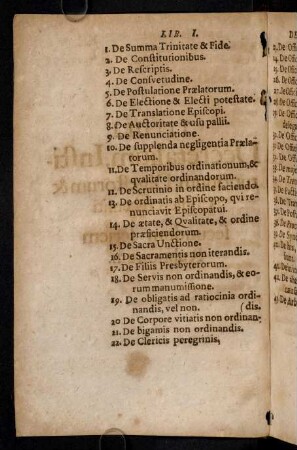 LIB. I.
1. De Summa Trinitate & Fide.
2. De Constitutionibus.
3. De Rescriptis.
4. De Consvetudine.
5. De Postulatione Prælatorum.
6. De Electione & Electi potestate.
7. De Translatione Episcopi.
8. De Auctoritate & usu pallii.
9. De Renunciatione.
10. De supplenda negligentia Præla-
torum.
11. De Temporibus ordinationum, &
qvalitate ordinandorum.
12. De Scrutinio in ordine faciendo.
13. De ordinatis ab Episcopo, qvi re-
nunciavit Episcopatui.
14. De ætate, & Qvalitate, & ordine
præficiendorum.
15. De Sacra Unctione.
16. De Sacramentis non iterandis.
17. De Filiis Presbyterorum.
18. De Servis non ordinandis, & eo-
rum manumissione.
19. De obligatis ad ratiocinia ordi-
nandis, vel non. (dis.
20 De Corpore vitiatis non ordinan-
21. De bigamis non ordinandis.
22. De Clericis peregrinis,